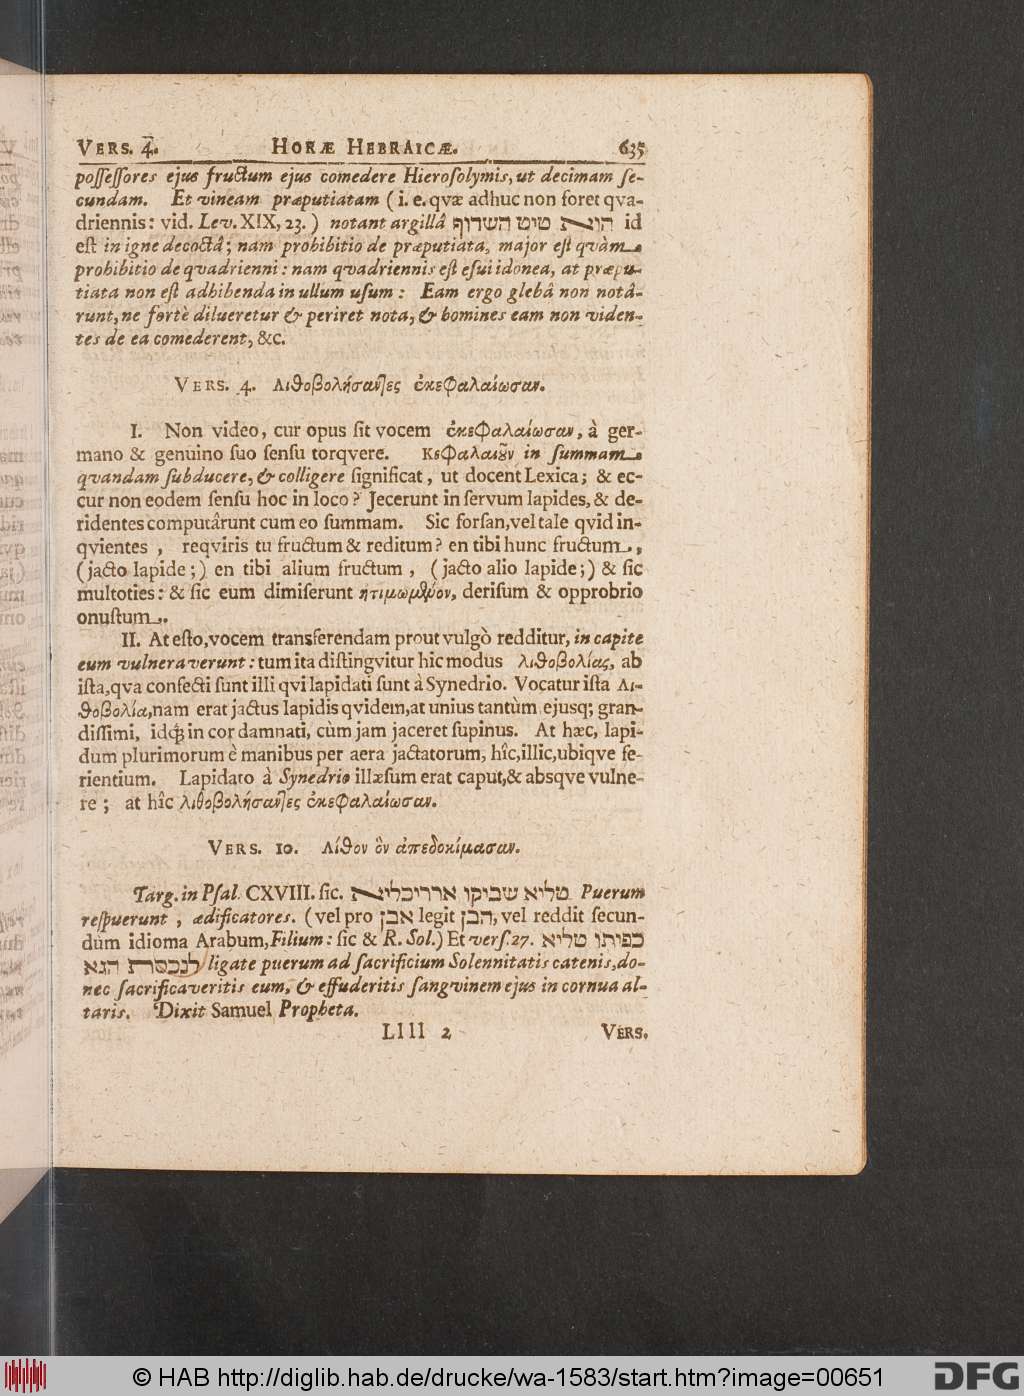 VERS. 4. HORÆ HEBRAICÆ. 635
poſſeſſores ejus fructum ejus comedere Hieroſolymis, ut decimam ſe-
cundam. Et vineam præputiatam ( i. e. qvæ adhuc non foret qva-
driennis: vid. Lev. XIX, 23. ) notant argillâ טיט השרוף id
eſt in igne decoctâ; nam prohibitio de præputiata, major eſt qvàm
prohibitio de qvadrienni: nam qvadriennis eſt eſui idonea, at præpu-
tiata non eſt adhibenda in ullum uſum: Eam ergo glebâ non notâ-
runt, ne fortè dilueretur & periret nota, & homines eam non viden-
tes de ea comederent, &c.
VERS. 4. Λιθοβολήσαντες ἐκεφαλαίωσαν.
I. Non video, cur opus ſit vocem ἐκεφαλαίωσαν, à ger-
mano & genuino ſuo ſenſu torqvere. Κεφαλαιοῦν in ſummam
qvandam ſubducere, & colligere ſignificat, ut docent Lexica; & ec-
cur non eodem ſenſu hoc in loco? Jecerunt in ſervum lapides, & de-
ridentes computârunt cum eo ſummam. Sic forſan, vel tale qvid in-
qvientes , reqviris tu fructum & reditum? en tibi hunc fructum,
(jacto lapide;) en tibi alium fructum , (jacto alio lapide;) & ſic
multoties: & ſic eum dimiſerunt ἠτιμωμένον, deriſum & opprobrio
onuſtum.
II. At eſto, vocem transferendam prout vulgò redditur, in capite
eum vulneraverunt: tum ita diſtingvitur hic modus λιθοβολίας, ab
iſta, qva confecti ſunt illi qvi lapidati ſunt à Synedrio. Vocatur iſta Λι-
θοβολία, nam erat jactus lapidis qvidem, at unius tantùm ejusq; gran-
diſſimi, idq; in cor damnati, cùm jam jaceret ſupinus. At hæc, lapi-
dum plurimorum è manibus per aera jactatorum, hîc, illic, ubiqve fe-
rientium. Lapidato à Synedrio illæſum erat caput, & absqve vulne-
re ; at hîc λιθοβολήσαντες ἐκεφαλαίωσαν.
VERS. 10. Λίθον ὃν ἀπεδοκίμασαν.
Targ. in Pſal. CXVIII. ſic. טליא שביקו ארדיכליא Puerum
reſpuerunt , ædificatores. (vel pro אבן legit הבן, vel reddit ſecun-
dùm idioma Arabum, Filium: ſic & R. Sol.) Et verſ. 27. כפיתו טליא
לנכסת חגא ligate puerum ad ſacrificium Solennitatis catenis, do-
nec ſacrificaveritis eum, & effuderitis ſangvinem ejus in cornua al-
taris. Dixit Samuel Propheta.
Llll 2 VERS.
© HAB http://diglib.hab.de/drucke/wa-1583/start.htm?image=00651
DFG